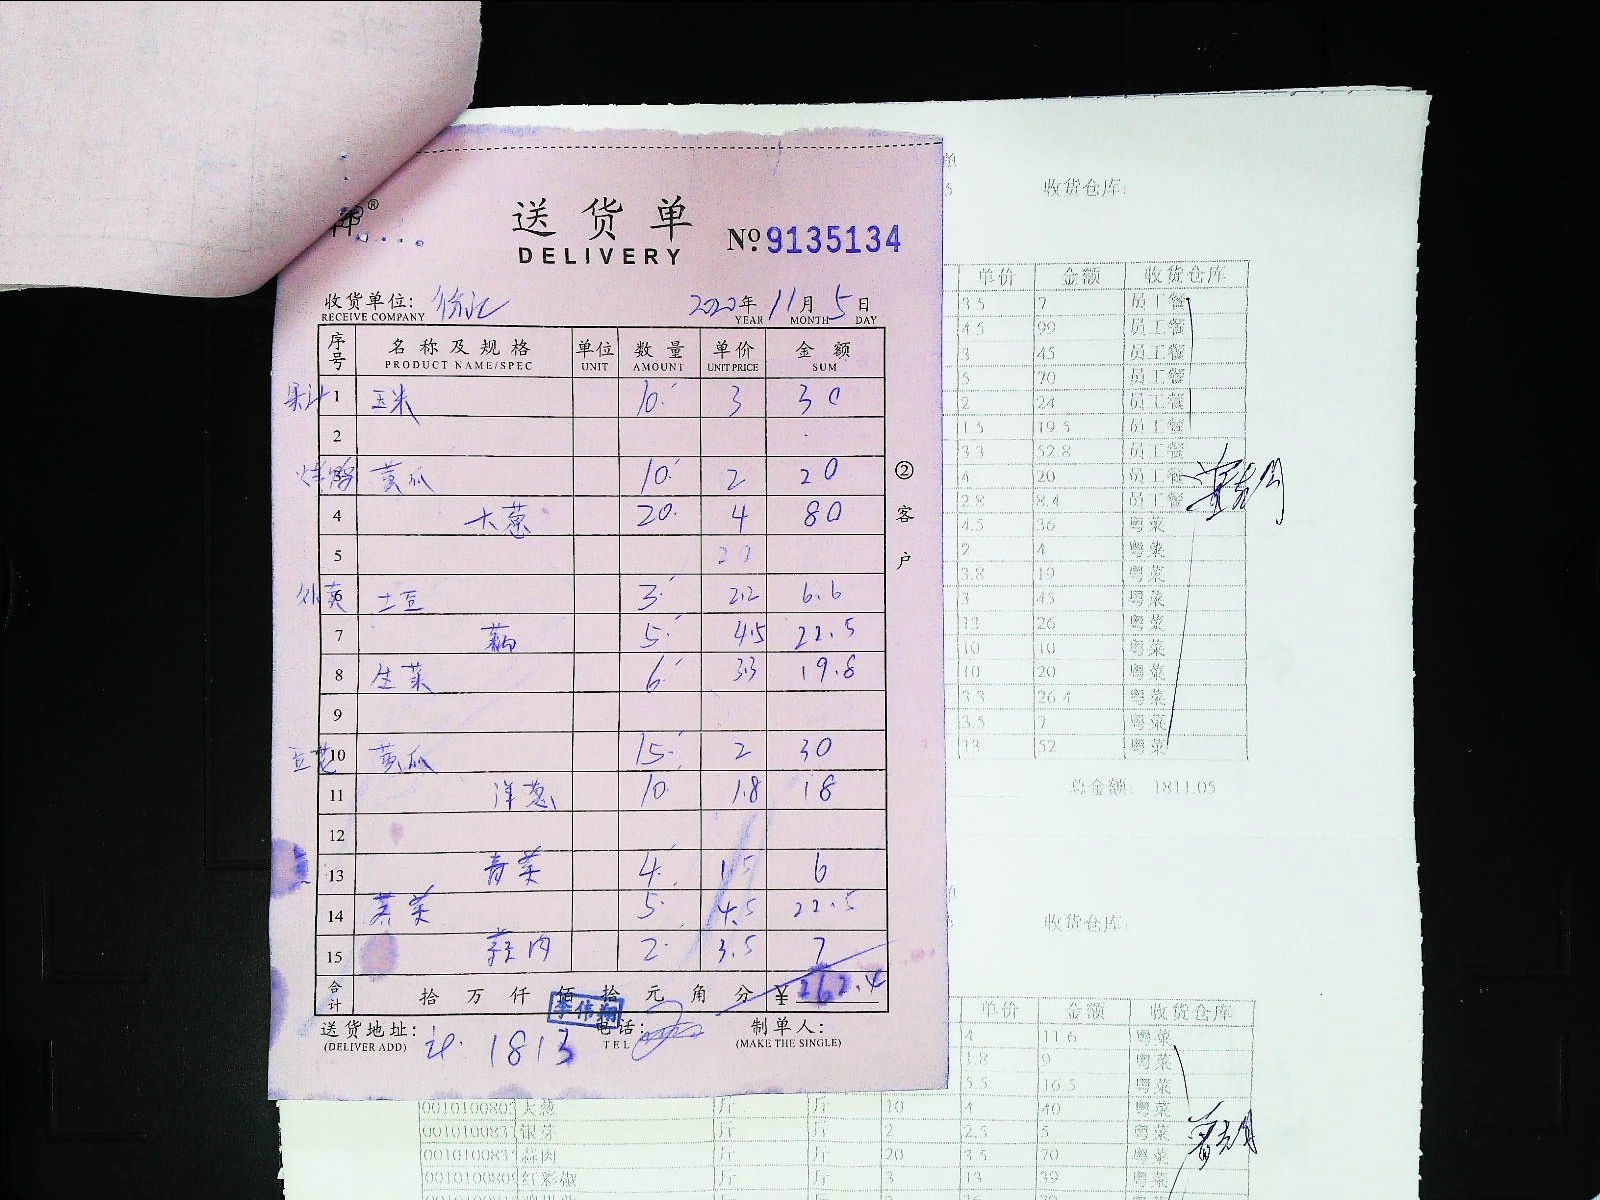 送货单
DELIVERY
№ 9135134
收货单位:
RECEIVE COMPANY
2022年 11月 5日
YEAR MONTH DAY
序号 名称及规格 单位 数量 单价 金额
PRODUCT NAME/SPEC UNIT AMOUNT UNIT PRICE SUM
果汁 1 玉米 10 3 30
2
烤鸭 黄瓜 10 2 20
4 大葱 20 4 80
5
外卖 6 土豆 3 2.2 6.6
7 藕 5 4.5 22.5
8 生菜 6 3.3 19.8
9
10 黄瓜 15 2 30
11 洋葱 10 1.8 18
12
13 青菜 4 1.5 6
14 5 4.5 22.5
15 蒜肉 2 3.5 7
合计 拾 万 仟 佰 拾 元 角 分 ¥ 262.4
李伟翔
送货地址: 电话: 制单人:
(DELIVER ADD) TEL (MAKE THE SINGLE)
1813
② 客户
收货仓库:
单价 金额 收货仓库
3.5 7 员工餐
4.5 99 员工餐
3 45 员工餐
5 70 员工餐
2 24 员工餐
1.5 19.5 员工餐
3.3 52.8 员工餐
4 20 员工餐
2.8 8.4 员工餐
4.5 36 粤菜
2 4 粤菜
3.8 19 粤菜
3 45 粤菜
13 26 粤菜
10 10 粤菜
10 20 粤菜
3.3 26.4 粤菜
3.5 7 粤菜
13 52 粤菜
总金额: 1811.05
收货仓库:
单价 金额 收货仓库
4 11.6 粤菜
1.8 9 粤菜
5.5 16.5 粤菜
大葱 斤 斤 10 4 40 粤菜
银芽 斤 斤 2 2.5 5 粤菜
蒜肉 斤 斤 20 3.5 70 粤菜
红彩椒 斤 斤 3 13 39 粤菜